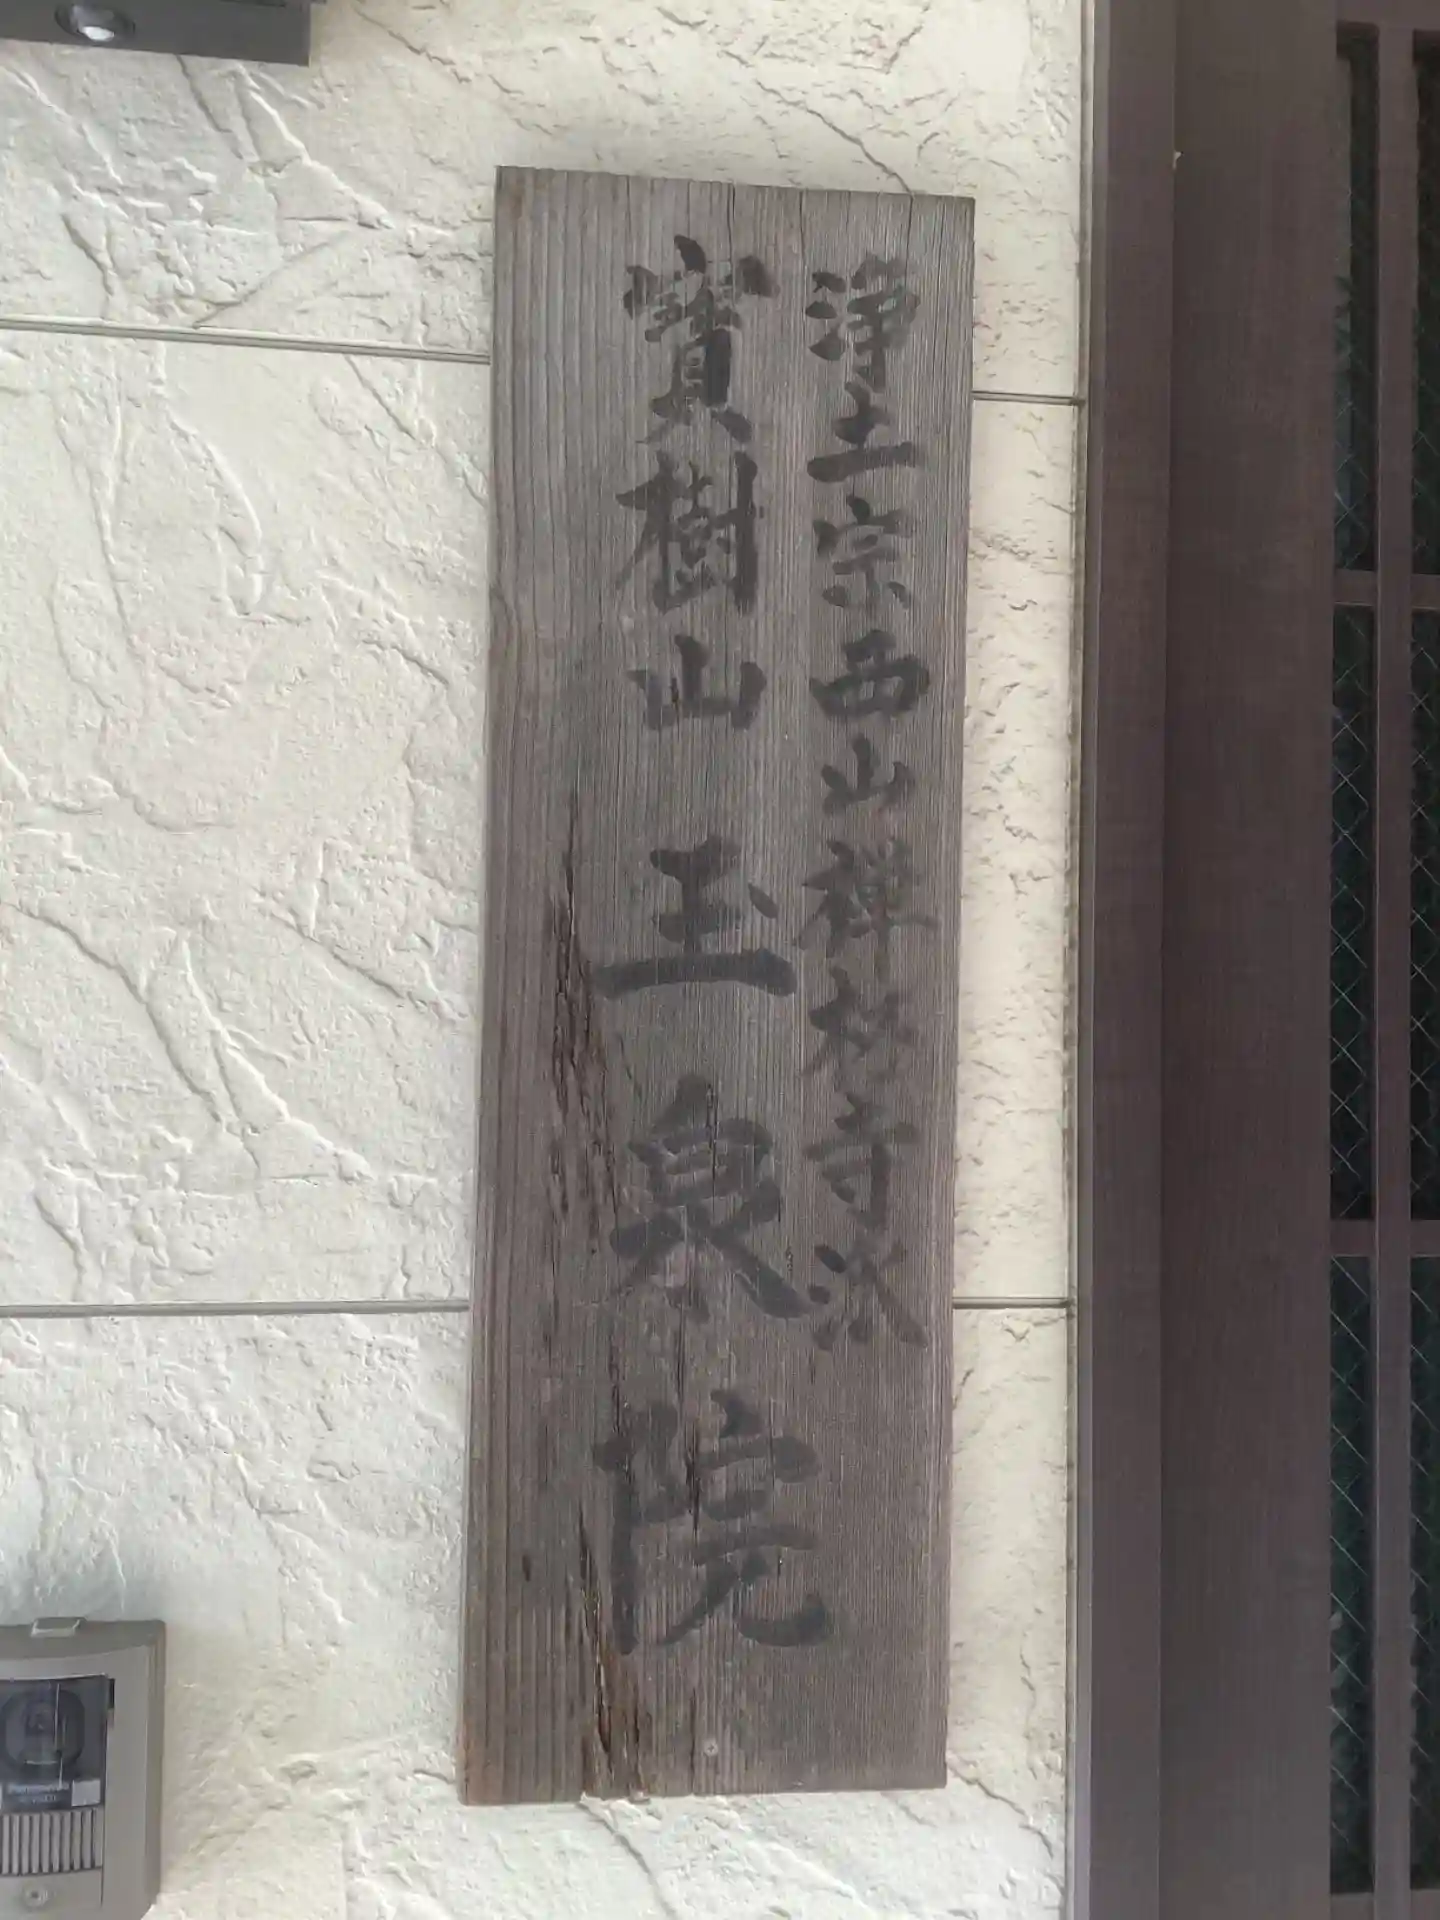 浄土宗西山禅林寺派
寳樹山 玉泉院
Panasonic